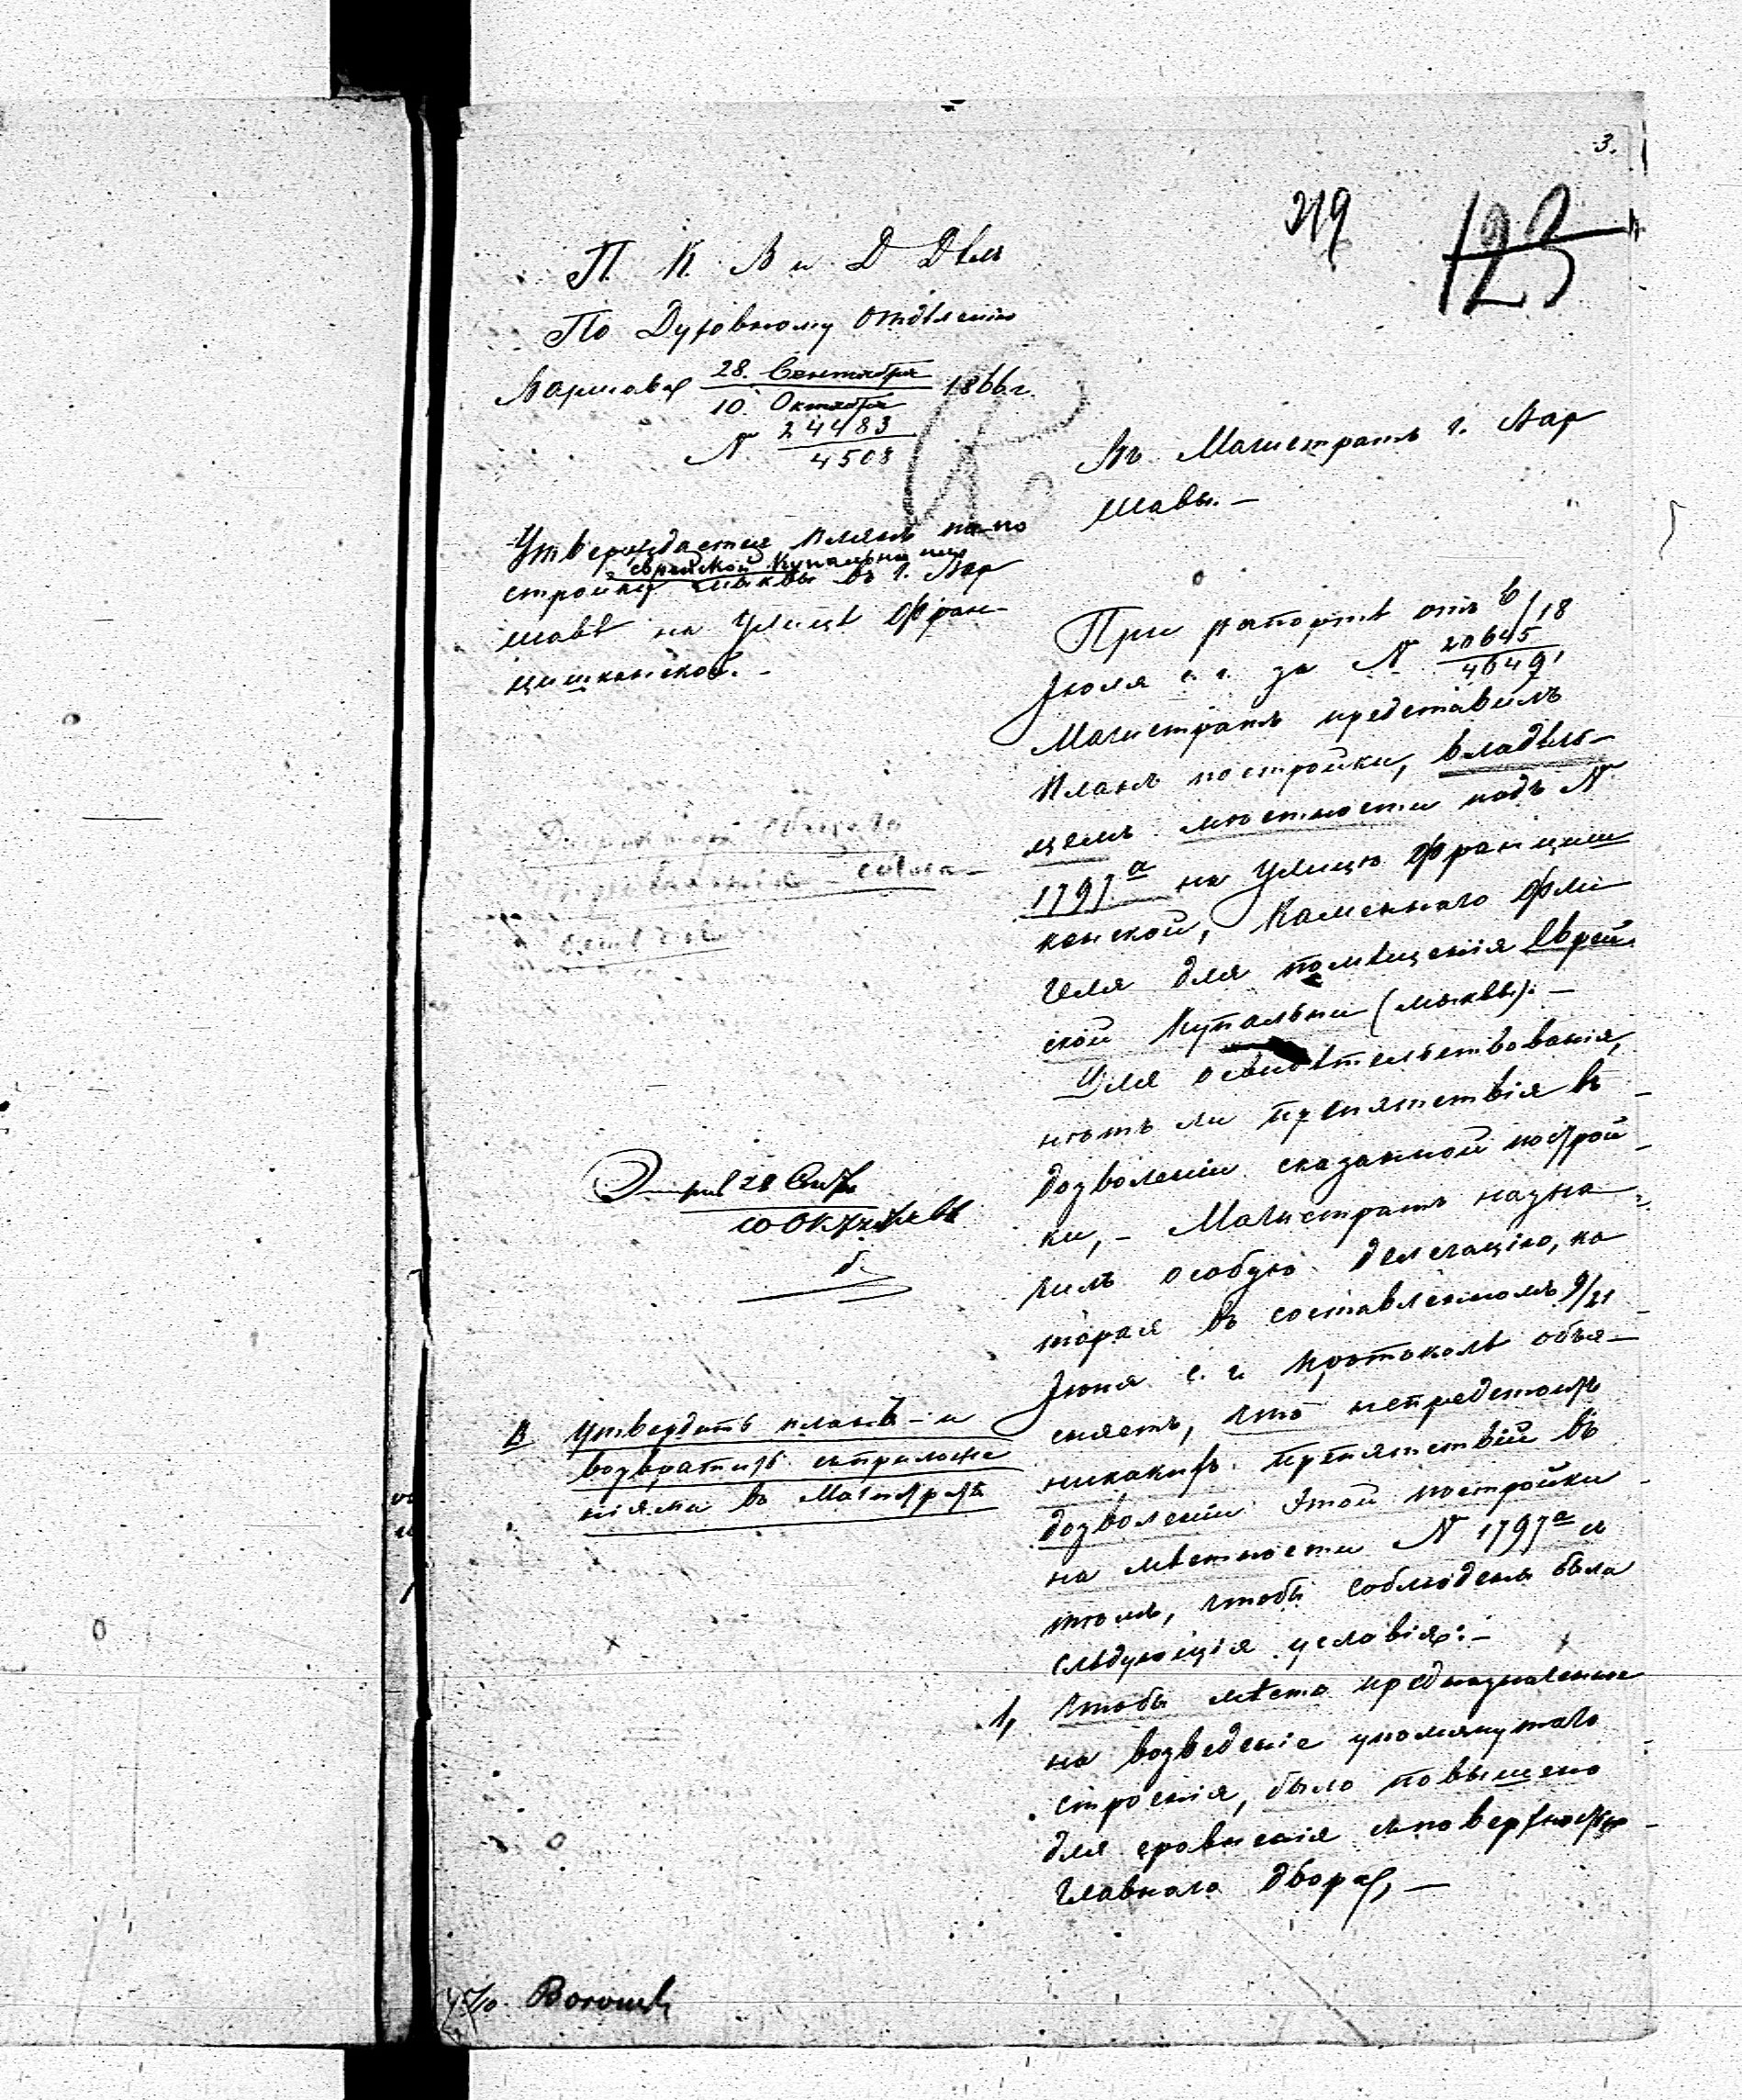 3.
219
123
П. К. В и Д Дѣлъ
По Духовному Отдѣленію
Варшава 28. Сентября 1866 г.
10. Октября
N 24483
4508
Въ Магистратъ г. Вар
шавы. —
Утверждается планъ на по
еврейской купальни или
стройку мыквы въ г. Вар
шавѣ на Улицѣ Фран-
цишканской. —
При рапортѣ отъ 6/18
Іюля с. г. за N 20645
4649,
Магистратъ представилъ
планъ постройки, владѣль-
цемъ мѣстности подъ N
1797 а на Улицѣ Францишканской, Каменнаго фли
геля для помѣщенія Еврей
ской Купальни (мыквы). —
Для освидѣтельствованія,
нѣтъ ли препятствія въ
дозволеніи сказанной построй
ки, — Магистратъ назна
чилъ особую делегацію, ко
торая въ составленномъ 9/21
Іюня с. г. протоколѣ объя-
сняетъ, что непредстоитъ
никакихъ препятствій въ
дозволеніи этой постройки
на мѣстности N 1797 а съ
тѣмъ, чтобы соблюдены были
слѣдующія условія: —
1, Чтобы мѣсто предназначенное
на возведеніе упомянутаго
строенія, было повышено
для сровненія съ поверхностью
главнаго двора, —
28 Сен
10 Октября
Утвердить планъ — и
возвратить съ приложе
ніями въ Магистратъ